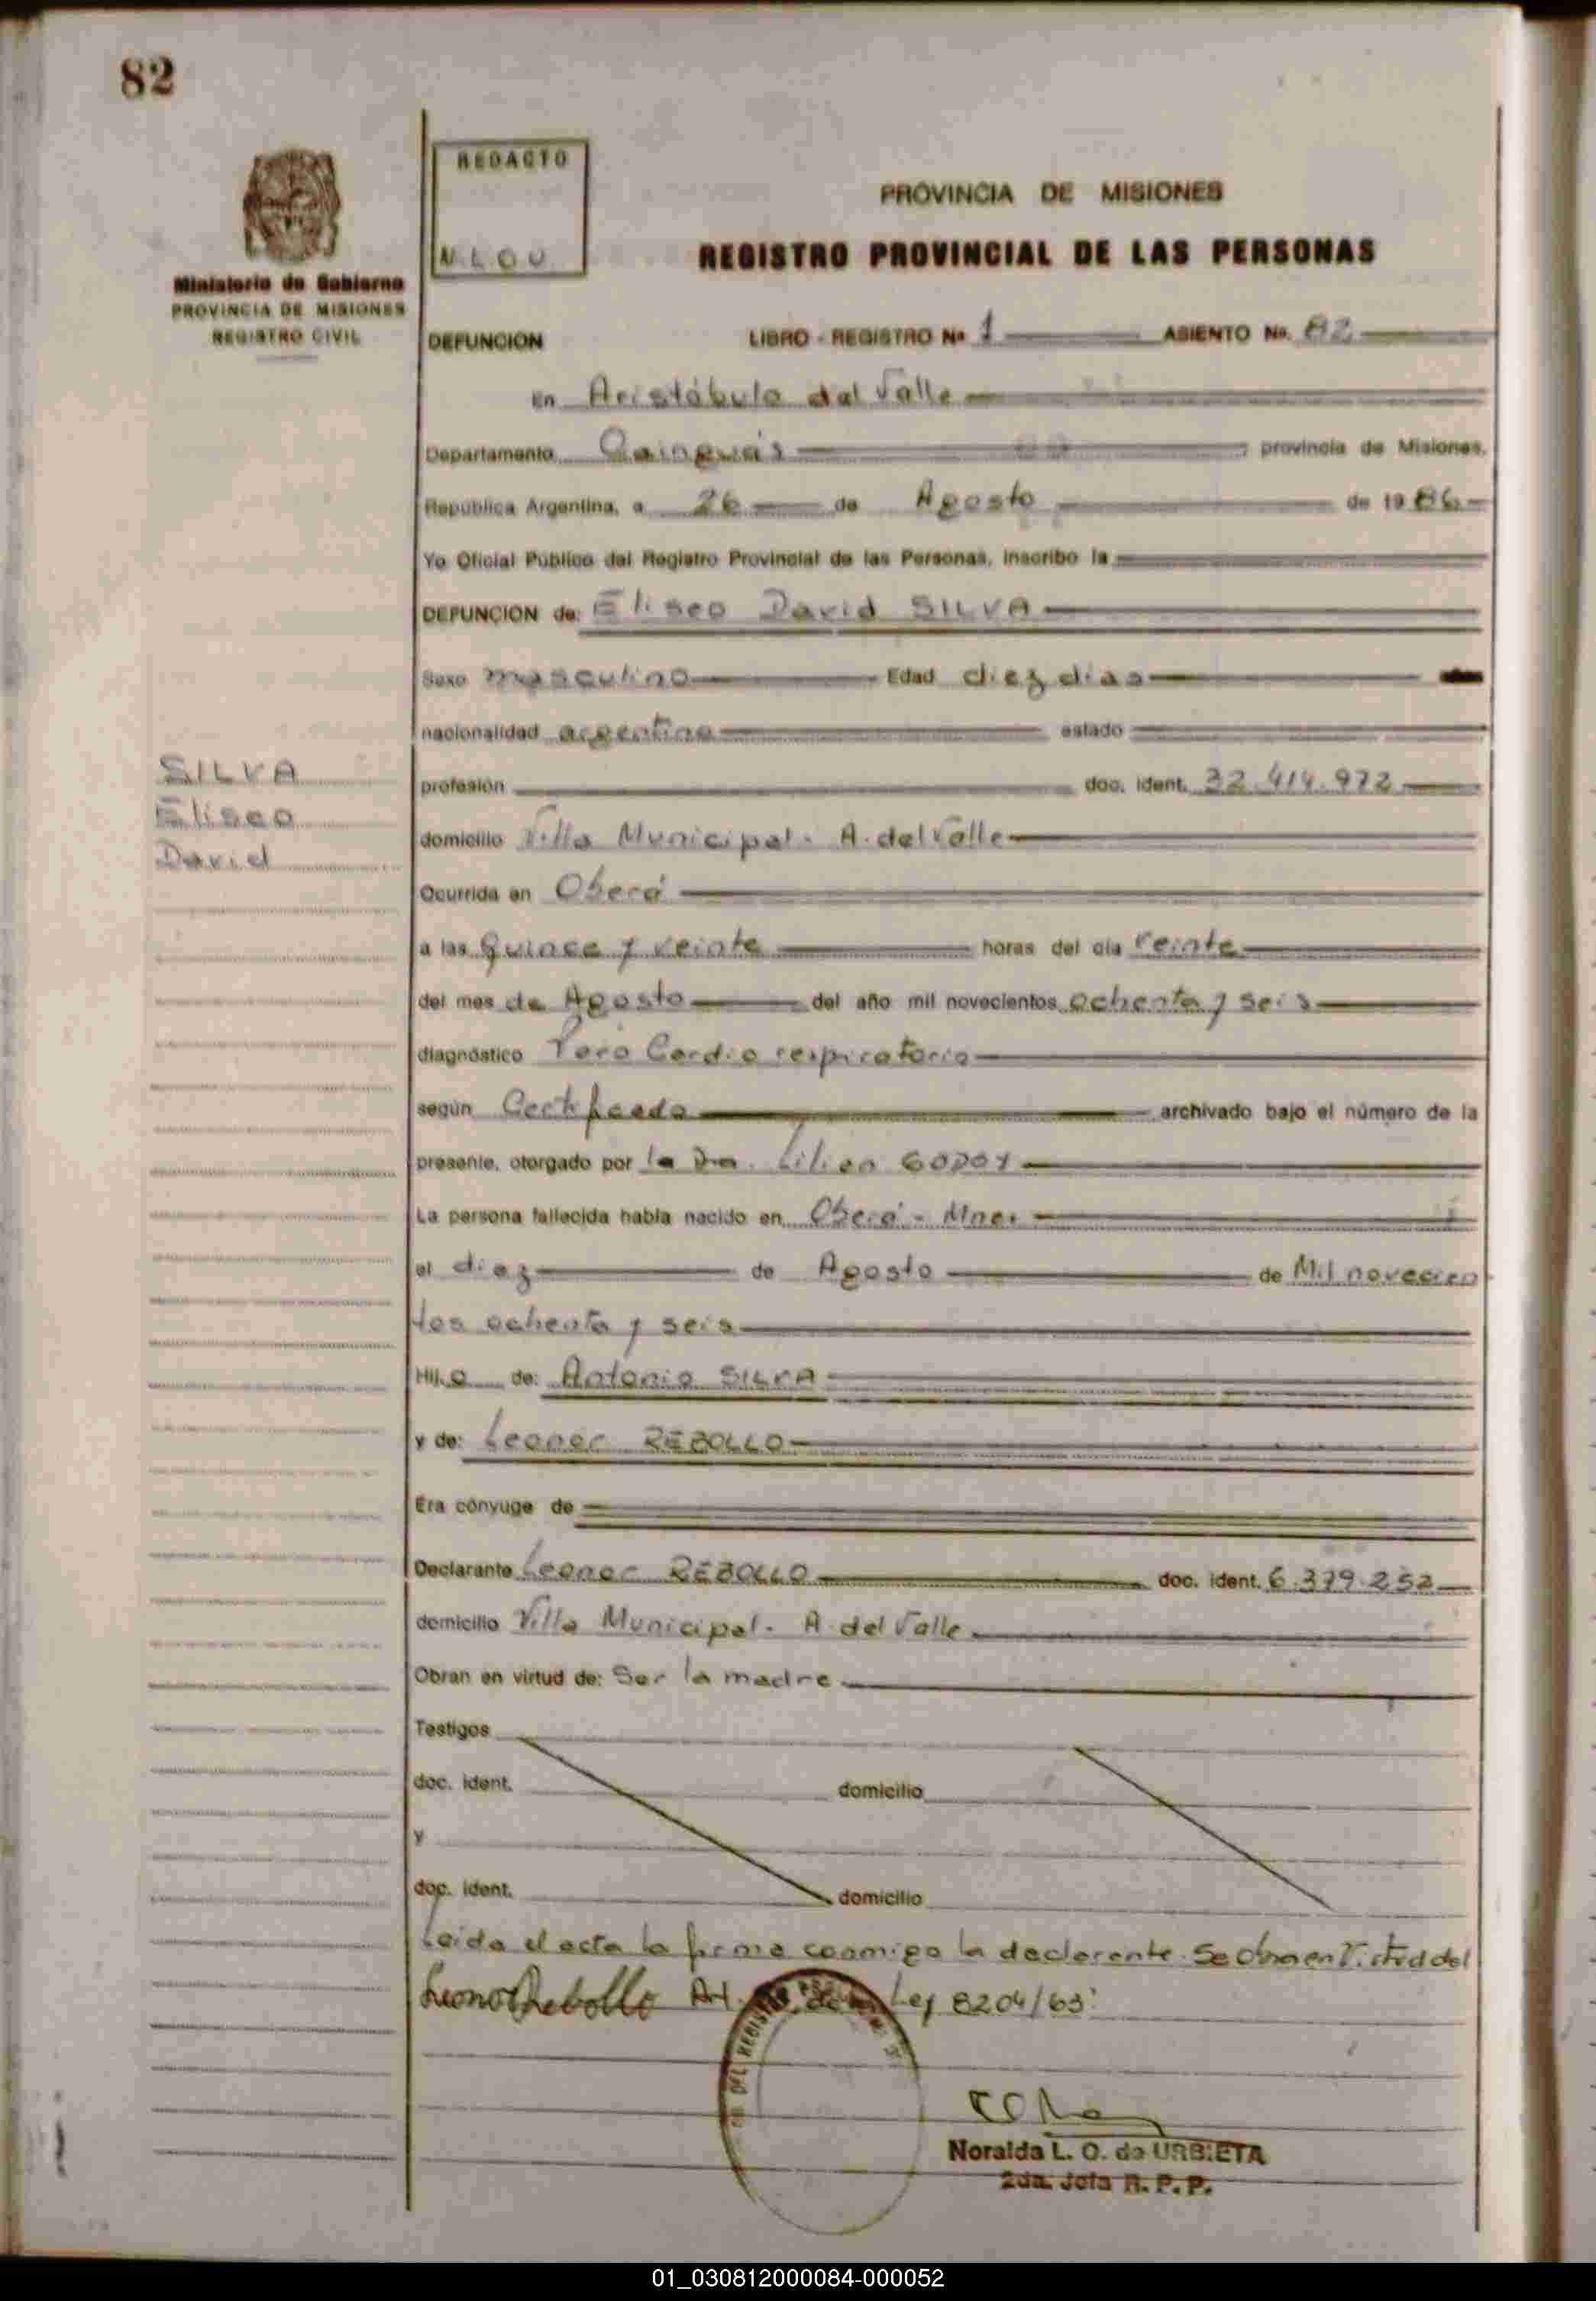 82
REDACTO
N L O U
PROVINCIA DE MISIONES
REGISTRO PROVINCIAL DE LAS PERSONAS
Ministerio de Gobierno
PROVINCIA DE MISIONES
REGISTRO CIVIL
DEFUNCION LIBRO - REGISTRO No 1 ASIENTO No. 82
En Aristóbulo del Valle
Departamento Cainguás provincia de Misiones,
República Argentina, a 26 de Agosto de 1986
Yo Oficial Público del Registro Provincial de las Personas, inscribo la
DEFUNCION de: Eliseo David SILVA
Sexo masculino Edad diez dias
nacionalidad argentina estado
SILVA
Eliseo
David
profesión doc. ident. 32.414.972
domicilio Villa Municipal - A. del Valle
Ocurrida en Oberá
a las Quince y veinte horas del día veinte
del mes de Agosto del año mil novecientos ochenta y seis
diagnóstico Paro Cardio respiratorio
según Certificado archivado bajo el número de la
presente, otorgado por la Dra. Lilian GODOY
La persona fallecida había nacido en Oberá - Mnes
el diez de Agosto de Mil novecien
tos ochenta y seis
Hijo de: Antonio SILVA
y de: Leonor REBOLLO
Era cónyuge de
Declarante Leonor REBOLLO doc. ident. 6.379.252
domicilio Villa Municipal - A. del Valle
Obran en virtud de: Ser la madre
Testigos
doc. ident. domicilio
y
doc. ident. domicilio
Leida el acta la firma conmigo la declarante. Se obra en Virtud del
Leonor Rebollo Art. Ley 8204/63
DEL REGISTRO
Noralda L. O. de URBIETA
2da. Jefa R. P. P.
01_030812000084-000052